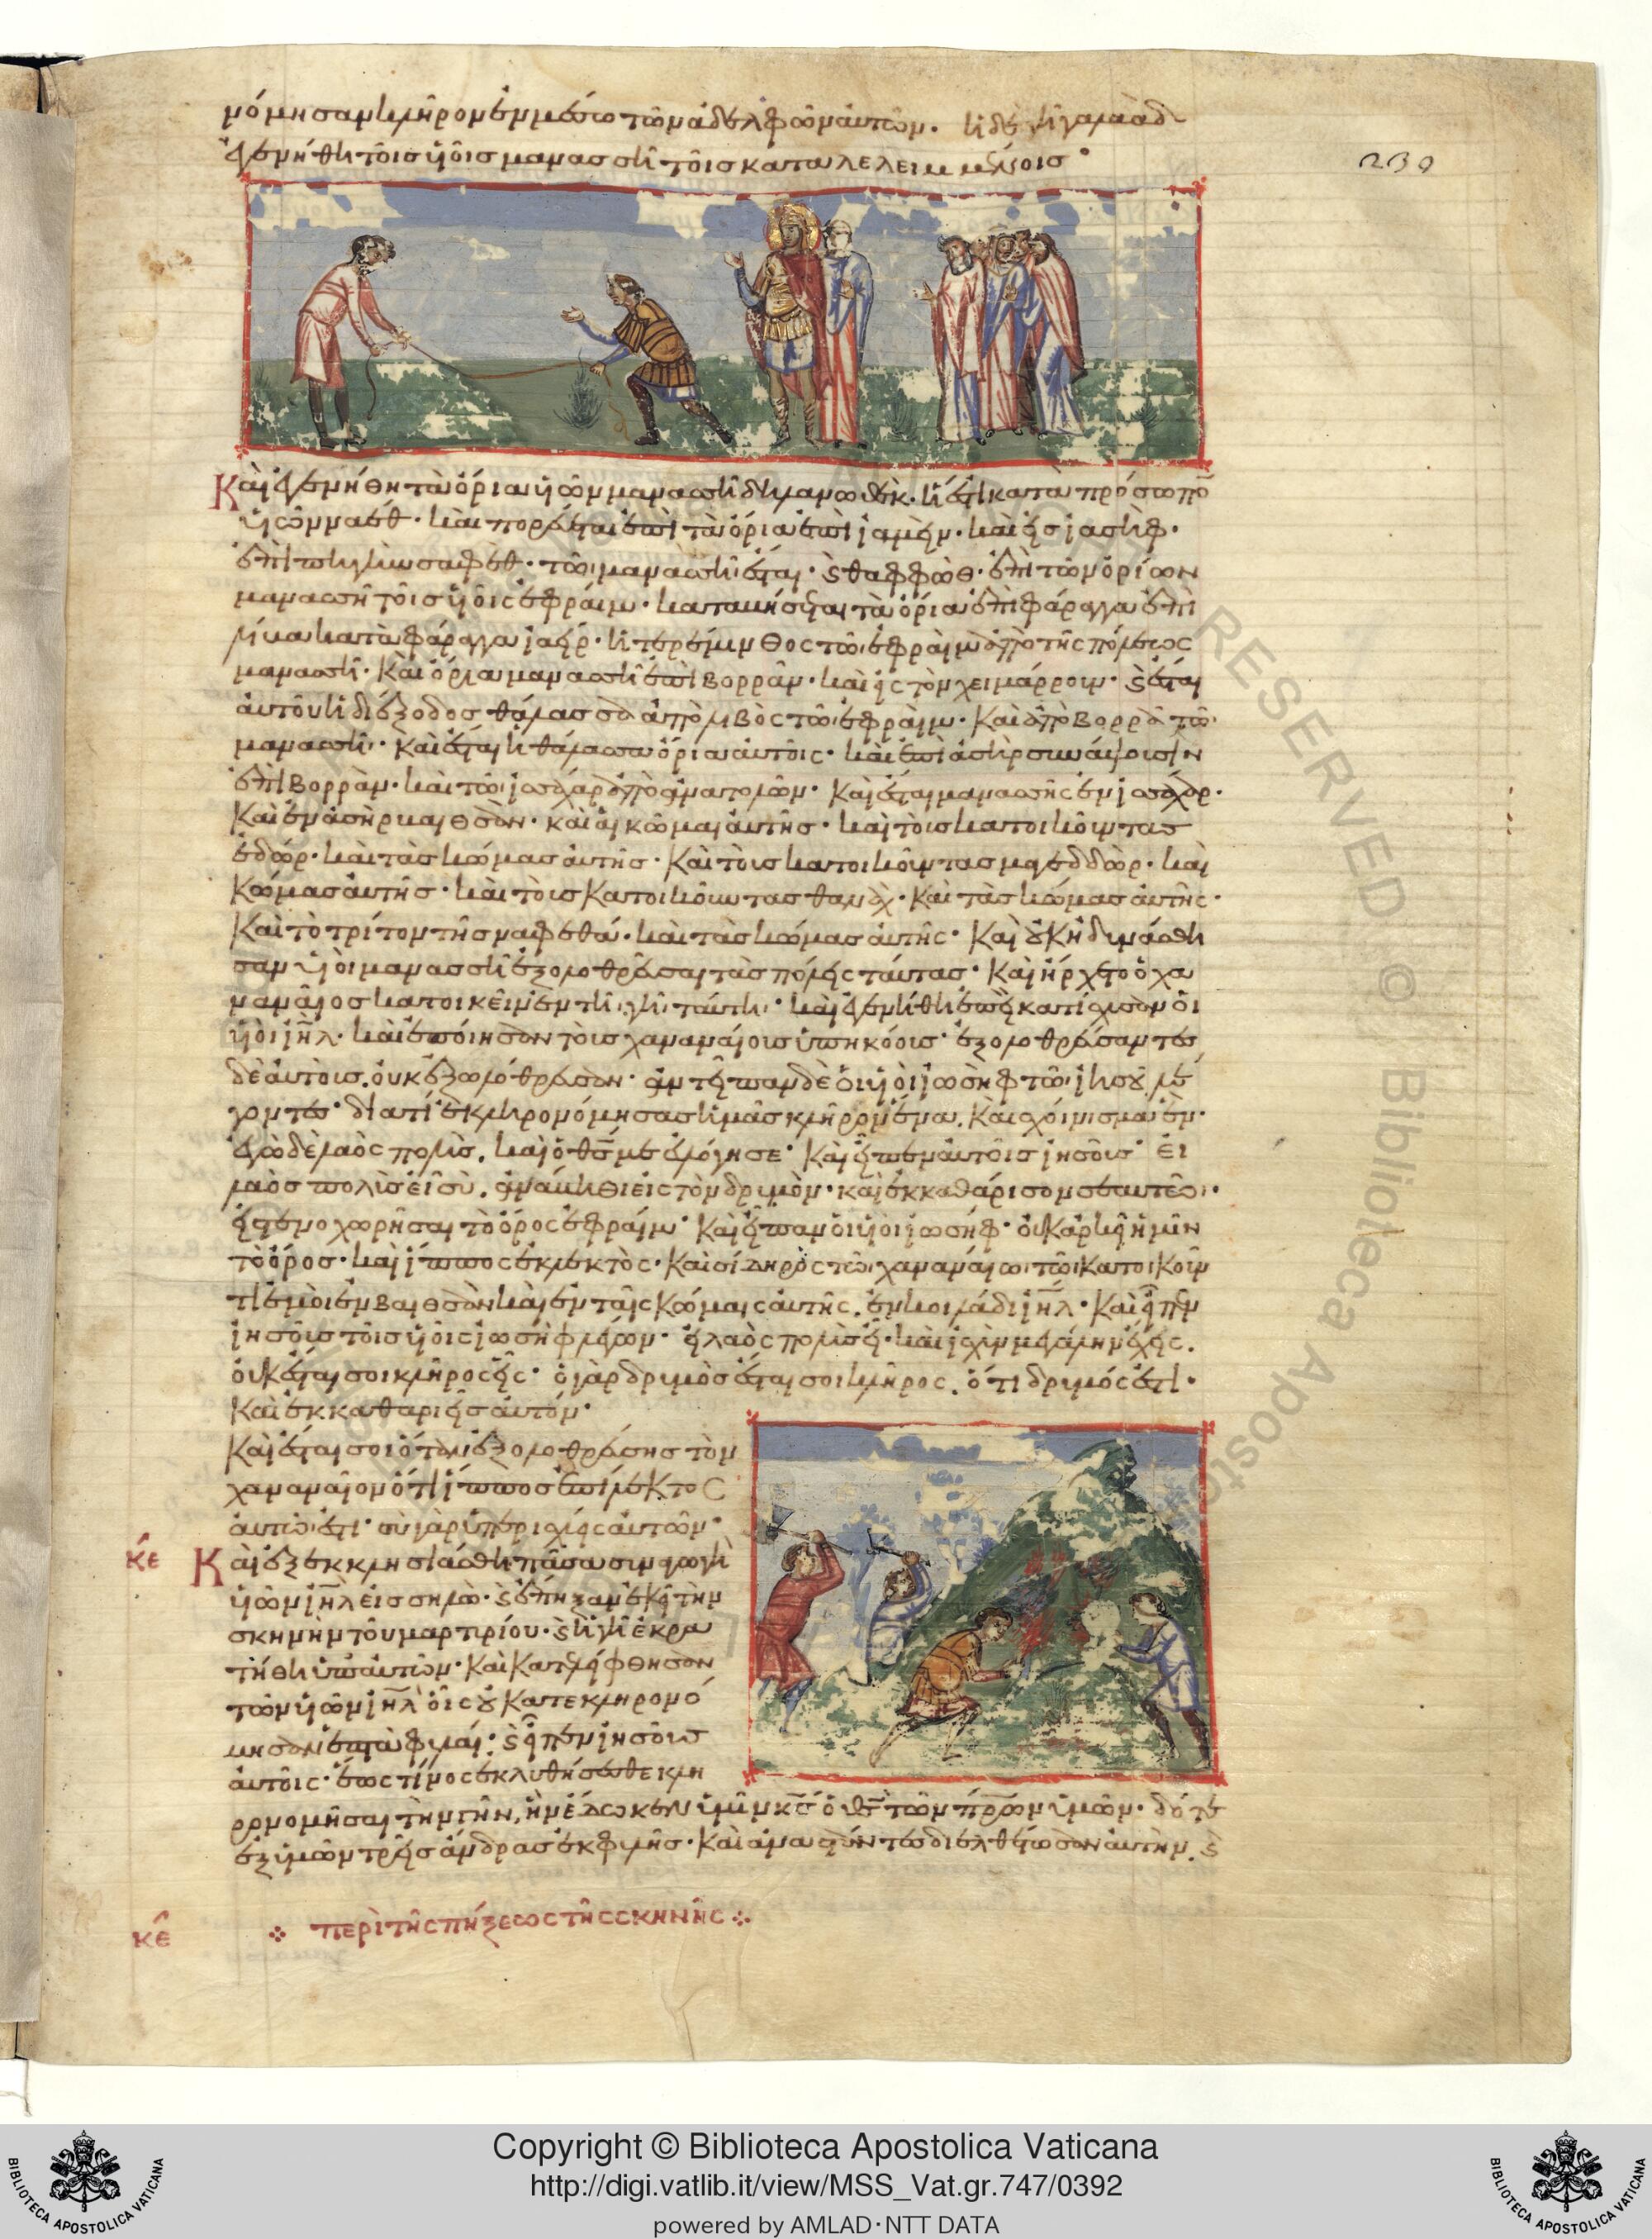 νόμησαν κλῆρον ἐν μέσω τῶν ἀδελφῶν αὐτῶν. ἡ δὲ γῆ γαλαὰδ
ἐγενήθη τοῖς υἱοῖς μανασσῆ τοῖς καταλελειμμένοις
239
Καὶ ἐγενήθη τὰ ὅρια υἱῶν μανασσῆ κατὰ πρόσωπον
υἱῶν καὶ πορεύεται ἐπὶ τὰ ὅρια ἐπὶ ἰαμὴν. καὶ εἰς ἰασὴφ.
ἐπὶ πηγὴν θαφεθ. τῶ μανασσῆ ἔσται. ϗ θαφφὼθ. ἐπὶ τῶν ὁρίων
μανασσῆ τοῖς υἱοῖς ἐφραίμ. καταβήσεται τὰ ὅρια ἐπὶ φάραγγα ἐπὶ
λίβα κατὰ φάραγγα ἰαείρ. ἡ τερέμινθος τῶ ἐφραὶμ ἀπὸ τῆς πόλεως
μανασσῆ. Καὶ ὅρια μανασσῆ ἐπὶ βορρᾶν. καὶ εἰς τὸν χειμάρρουν. ϗ ἔσται
αὐτοῦ ἡ διέξοδος θάλασσα ἀπὸ λιβὸς τῶ ἐφραὶμ. Καὶ ἀπὸ βορρᾶ τῶ
μανασσῆ. Καὶ ἔσται ἡ θάλασσα ὅρια αὐτοῖς. καὶ ἐπὶ ἀσὴρ συνάψουσιν
ἐπὶ βορρᾶν. καὶ τῶ ἰσσάχαρ ἀπὸ ἀνατολῶν. Καὶ ἔσται μανασσῆς ἐν ἰσσάχαρ.
Καὶ ἐν ἀσὴρ καιθσάν. καὶ αἱ κῶμαι αὐτῆς. καὶ τοὺς κατοικοῦντας
ἐδώρ. καὶ τὰς κώμας αὐτῆς. Καὶ τοὺς κατοικοῦντας μαγεδδώρ. καὶ
κώμας αὐτῆς. καὶ τοὺς κατοικοῦντας θαναχ. Καὶ τὰς κώμας αὐτῆς.
Καὶ τὸ τρίτον τῆς ναφεθά. καὶ τὰς κώμας αὐτῆς. Καὶ οὐκ ἠδυνάσθη
σαν υἱοὶ μανασσῆ ἐξολοθρεῦσαι τὰς πόλεις ταύτας. Καὶ ἤρχετο ὁ χα
ναναῖος κατοικεῖν ἐν τῆ γῆ ταύτη. καὶ ἐγενήθη ἐπεὶ κατίσχυσαν οἱ
υἱοὶ ιηλ. καὶ ἐποίησαν τοὺς χαναναίους ὑπηκόους. ἐξολοθρεύσαντες
δὲ αὐτοὺς. οὐκ ἐξωλόθρευσαν. ἀντεῖπαν δὲ οἱ υἱοὶ ἰωσὴφ τῶ ἰησοῦ λέ
γοντες. διατί ἐκληρονόμησας ἡμᾶς κλῆρον ἕνα. Καὶ σχοίνισμα ἕν.
ἐγὼ δὲ λαὸς πολὺς. καὶ ὁ θς με εὐλόγησε. Καὶ εἶπεν αὐτοῖς ἰησοῦς εἰ
λαὸς πολὺς εἶ σὺ. ἀνάβηθι εἰς τὸν δρυμὸν. καὶ ἐκκαθάρισον σεαυτῶ.
εἰ στενοχωρῆσαι τὸ ὄρος ἐφραίμ. Καὶ εἶπαν οἱ υἱοὶ ἰωσήφ. οὐκ ἀρκεῖ ἡμῖν
τὸ ὄρος. καὶ ἵππος ἐκλεκτὸς. Καὶ σίδηρος τῶ χαναναίω τῶ κατοικοῦν
τι ἐμοὶ ἐν βαιθσὰν καὶ ἐν ταῖς κώμαις αὐτῆς. ἐν κοιλάδι ιηλ. Καὶ εἶπεν
ἰησοῦς τοῖς υἱοῖς ἰωσὴφ λέγων. εἰ λαὸς πολὺς εἶ. καὶ ἰσχὺν μεγάλην ἔχεις.
οὐκ ἔσται σοι κλῆρος εἷς. ὁ γὰρ δρυμὸς ἔσται σοι κλῆρος. ὅτι δρυμός ἐστι.
Καὶ ἐκκαθαριεῖς αὐτόν.
Καὶ ἔσται σοι ὅταν ἐξολοθρεύσης τὸν
χαναναῖον ὅτι ἵππος ἐπίλεκτος
αὐτῶ ἐστι. σὺ γὰρ ὑπερισχύεις αὐτῶν.
κε Καὶ ἐξεκκλησιάσθη πᾶσα συναγωγὴ
υἱῶν ιηλ εἰς σηλὼ. ϗ ἔπηξαν ἐκεῖ τὴν
σκηνὴν τοῦ μαρτυρίου. ϗ ἡ γῆ ἐκρα
τήθη ὑπ' αὐτῶν. Καὶ κατελείφθησαν
τῶν υἱῶν ιηλ οἳς οὐ κατεκληρονό
μησαν ἑπτὰ φυλαί. ϗ εἶπεν ἰησοῦς
αὐτοῖς. ἕως τίνος ἐκλυθήσεσθε κλη
ρονομῆσαι τὴν γῆν, ἣν ἔδωκεν ὑμῖν κς ὁ θς τῶν πρων ὑμῶν. δότε
ἐξ ὑμῶν τρεῖς ἄνδρας ἐκ φυλῆς. Καὶ ἀναστάντες διελθέτωσαν αὐτὴν. ϗ
κε περὶ τῆς πήξεως τῆς σκηνῆς
RESERVED © Biblioteca Apostolica
Copyright © Biblioteca Apostolica Vaticana
http://digi.vatlib.it/view/MSS_Vat.gr.747/0392
powered by AMLAD·NTT DATA
BIBLIOTECA APOSTOLICA VATICANA
BIBLIOTECA APOSTOLICA VATICANA